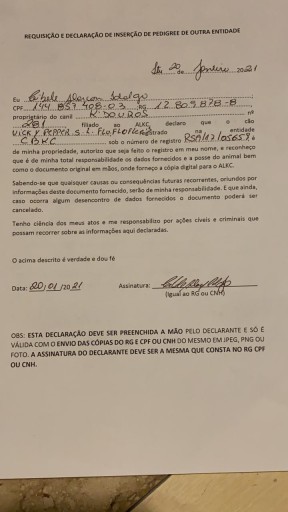 REQUISIÇÃO E DECLARAÇÃO DE INSERÇÃO DE PEDIGREE DE OUTRA ENTIDADE
20 de Janeiro 2021
Eu
CPF 144 857 408-03 RG 12.809.878-8
proprietário do canil K'DOUROS nº
281 filiado ao ALKC, declaro que o cão
VICKY PEPPER S. L. registrado na entidade
CBKC sob o número de registro é
de minha propriedade, autorizo que seja feito o registro em meu nome, e reconheço
que é de minha total responsabilidade os dados fornecidos e a posse do animal bem
como o documento original em mãos, onde forneço a cópia digital para o ALKC.
Sabendo-se que quaisquer causas ou consequências futuras recorrentes, oriundos por
informações deste documento fornecido, serão da minha responsabilidade. E que ainda,
caso ocorra algum desencontro de dados fornecidos o documento poderá ser
cancelado.
Tenho ciência dos meus atos e me responsabilizo por ações cíveis e criminais que
possam recorrer sobre as informações aqui declaradas.
O acima descrito é verdade e dou fé
Data: 20/01/2021 Assinatura:
(Igual ao RG ou CNH)
OBS: ESTA DECLARAÇÃO DEVE SER PREENCHIDA A MÃO PELO DECLARANTE E SÓ É
VÁLIDA COM O ENVIO DAS CÓPIAS DO RG E CPF OU CNH DO MESMO EM JPEG, PNG OU
FOTO. A ASSINATURA DO DECLARANTE DEVE SER A MESMA QUE CONSTA NO RG CPF
OU CNH.